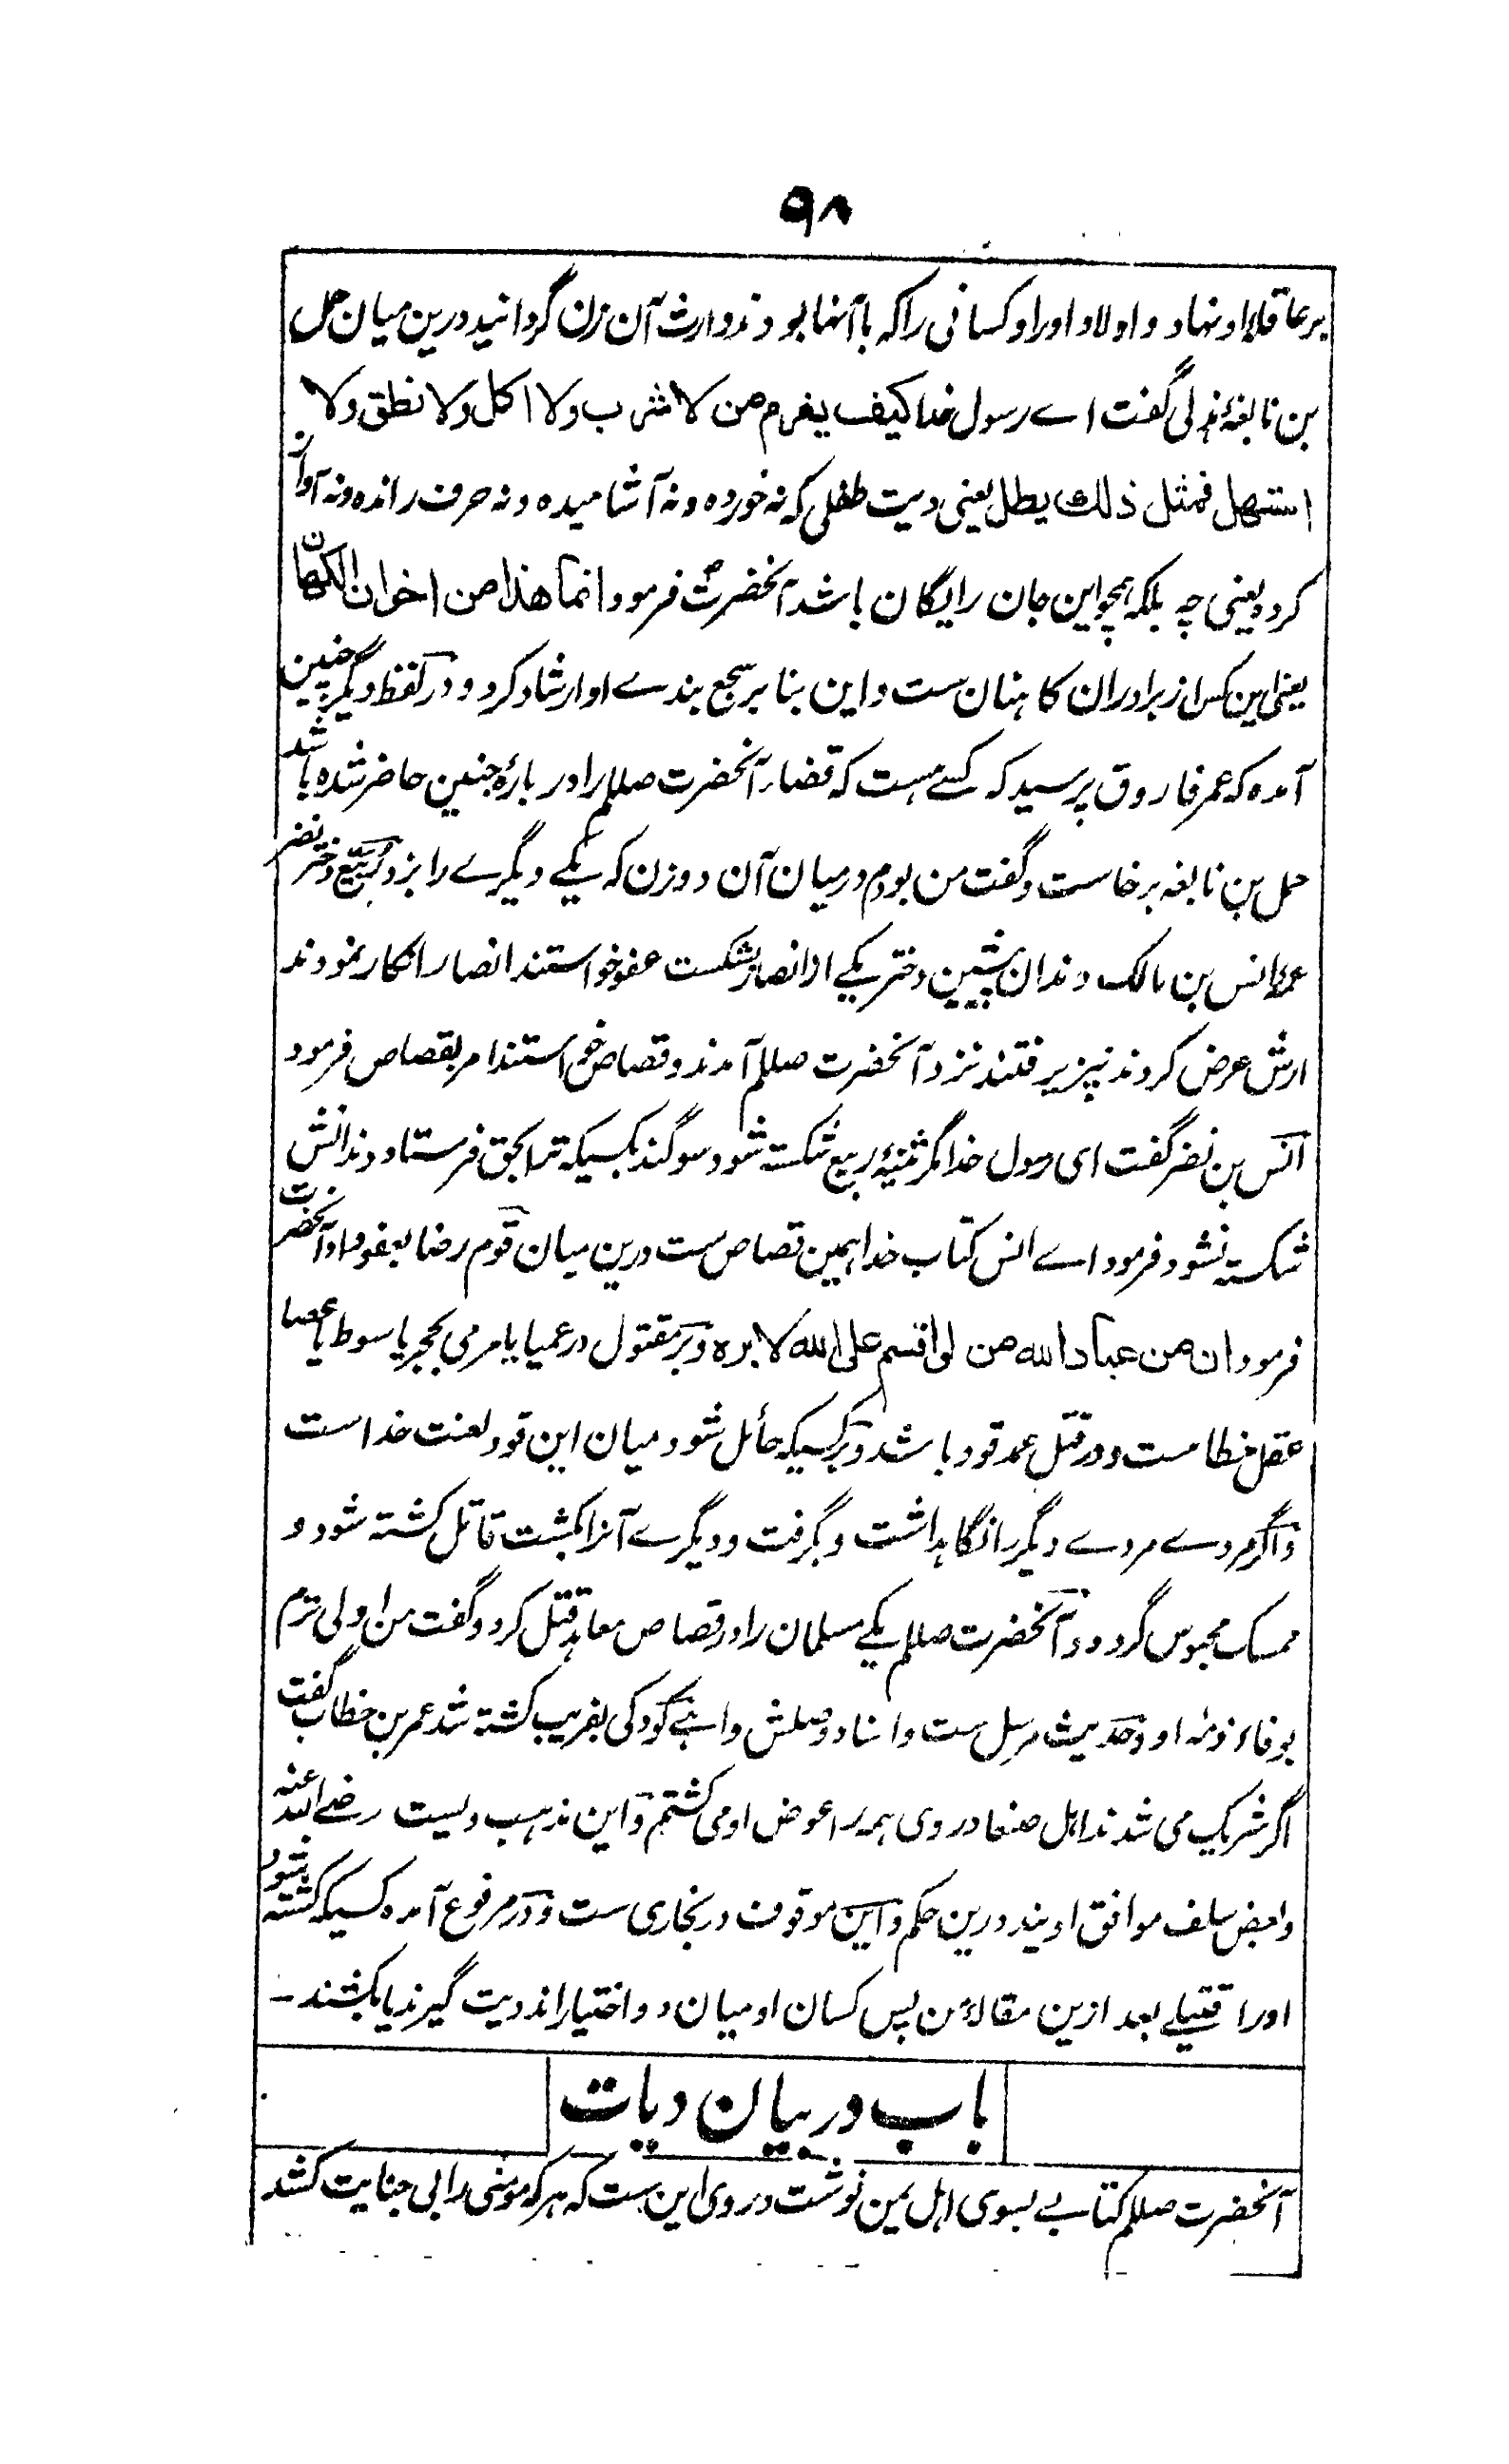 ۹۸
بر عاقلهٔ او نهاد و اولاد او را و کسانی را که با آنها بودند وارث آن زن گردانید درین میان حمل
بن نابغهٔ هذلی گفت اے رسول خدا کیف یغرم من لا شرب ولا اکل ولا نطق ولا
استهل فمثل ذلك یطل یعنی دیت طفلی که نه خورده و نه آشامیده و نه حرف رانده و نه آواز
کرده یعنی چه بلکه همچو این جان رایگان باشد آنحضرتؐ فرمود انما هذا من اخوان الکهان
یعنی این کس از برادران کاهنان ست و این بنا بر سجع بندے او ارشاد کرد و در لفظ دیگر چنین
آمده که عمر فاروق پرسید که کسے هست که قضاء آنحضرت صللم را در بارهٔ جنین حاضر شده باشد
حمل بن نابغه برخاست و گفت من بودم درمیان آن دو زن که یکے دیگرے را بزد و ربیع دختر نضر
عمهٔ انس بن مالک دندان پیشین دختر یکے از انصار بشکست عفو خواستند انصار انکار نمودند
ارش عرض کردند نپذیرفتند نزد آنحضرت صللم آمدند و قصاص خواستند امر بقصاص فرمود
انس بن نضر گفت ای رسول خدا مگر ثنیهٔ ربیع شکسته شود سوگند بکسیکه ترا بحق فرستاد دندانش
شکسته نشود فرمود اے انس کتاب خدا همین قصاص ست درین میان قوم رضا بعفو داد آنحضرت
فرمود ان من عباد الله من لو اقسم علی الله لابره و بر مقتول در عمیا یا مرمی بحجر یا سوط یا عصا
عقل خطاست و در قتل عمد قود باشد و بر کسیکه حائل شود میان این قود لعنت خداست
و اگر مردے مردے دیگر را نگاهداشت و بگرفت و دیگرے آنرا بکشت قاتل کشته شود و
ممسک محبوس گردد و آنحضرت صللم یکے مسلمان را در قصاص معاهد قتل کرد و گفت من اولی ترم
بوفاء ذمهٔ او و حدیث مرسل ست و اسناد وصلش واهی کودکی بفریب کشته شد عمر بن خطاب گفت
اگر شریک می شدند اهل صنعا در وی همه را عوض او می کشتم و این مذهب ویست رضی الله عنه
و بعض سلف موافق اویند درین حکم و این موقوف در بخاری ست و در مرفوع آمده کسیکه کشته شود
او را قتیلے بعد ازین مقالهٔ من پس کسان او میان دو اختیار اند دیت گیرند یا بکشند –
باب در بیان دیات
آنحضرت صللم کتابے بسوی اهل یمن نوشت در وی این ست که هر که مومنی را بی جنایت کشد